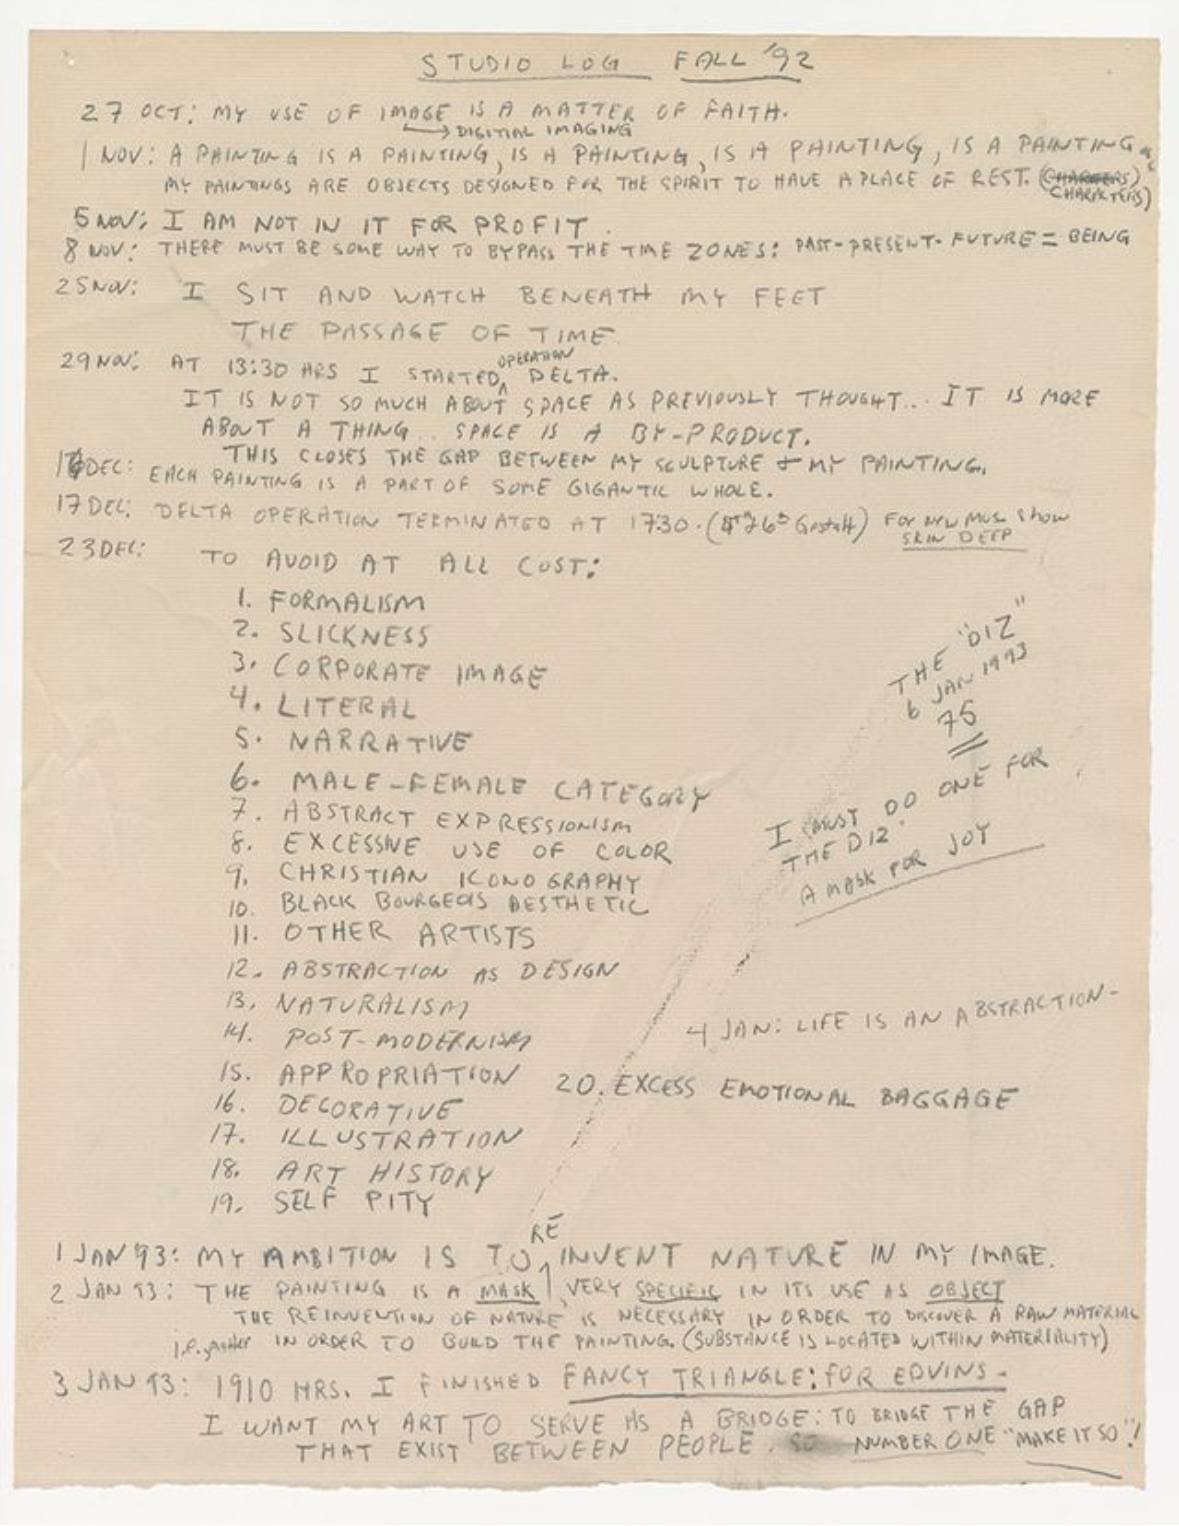 STUDIO LOG FALL '92
27 OCT: MY USE OF IMAGE IS A MATTER OF FAITH.
→ DIGITIAL IMAGING
1 NOV: A PAINTING IS A PAINTING, IS A PAINTING, IS A PAINTING, IS A PAINTING.
MY PAINTINGS ARE OBJECTS DESIGNED FOR THE SPIRIT TO HAVE A PLACE OF REST.
CHARACTERS)
5 NOV: I AM NOT IN IT FOR PROFIT.
8 NOV: THERE MUST BE SOME WAY TO BYPASS THE TIME ZONES: PAST-PRESENT-FUTURE = BEING
25 NOV: I SIT AND WATCH BENEATH MY FEET
THE PASSAGE OF TIME
29 NOV: AT 13:30 HRS I STARTED OPERATION DELTA.
IT IS NOT SO MUCH ABOUT SPACE AS PREVIOUSLY THOUGHT... IT IS MORE
ABOUT A THING.. SPACE IS A BY-PRODUCT.
THIS CLOSES THE GAP BETWEEN MY SCULPTURE & MY PAINTING.
DEC: EACH PAINTING IS A PART OF SOME GIGANTIC WHOLE.
17 DEC: DELTA OPERATION TERMINATED AT 1730. FOR NEW MUS. Show
SKIN DEEP
23 DEC: TO AVOID AT ALL COST:
1. FORMALISM
2. SLICKNESS
3. CORPORATE IMAGE
4. LITERAL
5. NARRATIVE
6. MALE-FEMALE CATEGORY
7. ABSTRACT EXPRESSIONISM
8. EXCESSIVE USE OF COLOR
9. CHRISTIAN ICONOGRAPHY
10. BLACK BOURGEOIS AESTHETIC
11. OTHER ARTISTS
12. ABSTRACTION AS DESIGN
13. NATURALISM
14. POST-MODERNISM
15. APPROPRIATION
16. DECORATIVE
17. ILLUSTRATION
18. ART HISTORY
19. SELF PITY
20. EXCESS EMOTIONAL BAGGAGE
THE "DIZ"
6 JAN 1993
75
I MUST DO ONE FOR
THE DIZ.
A MASK FOR JOY
4 JAN: LIFE IS AN ABSTRACTION-
1 JAN 93: MY AMBITION IS TO RE INVENT NATURE IN MY IMAGE.
2 JAN 93: THE PAINTING IS A MASK, VERY SPECIFIC IN ITS USE AS OBJECT
THE REINVENTION OF NATURE IS NECESSARY IN ORDER TO DISCOVER A RAW MATERIAL
i.e. matter IN ORDER TO BUILD THE PAINTING. (SUBSTANCE IS LOCATED WITHIN MATERIALITY)
3 JAN 93: 1910 HRS. I FINISHED FANCY TRIANGLE: FOR EDVINS-
I WANT MY ART TO SERVE AS A BRIDGE: TO BRIDGE THE GAP
THAT EXIST BETWEEN PEOPLE. SO NUMBER ONE "MAKE IT SO"!